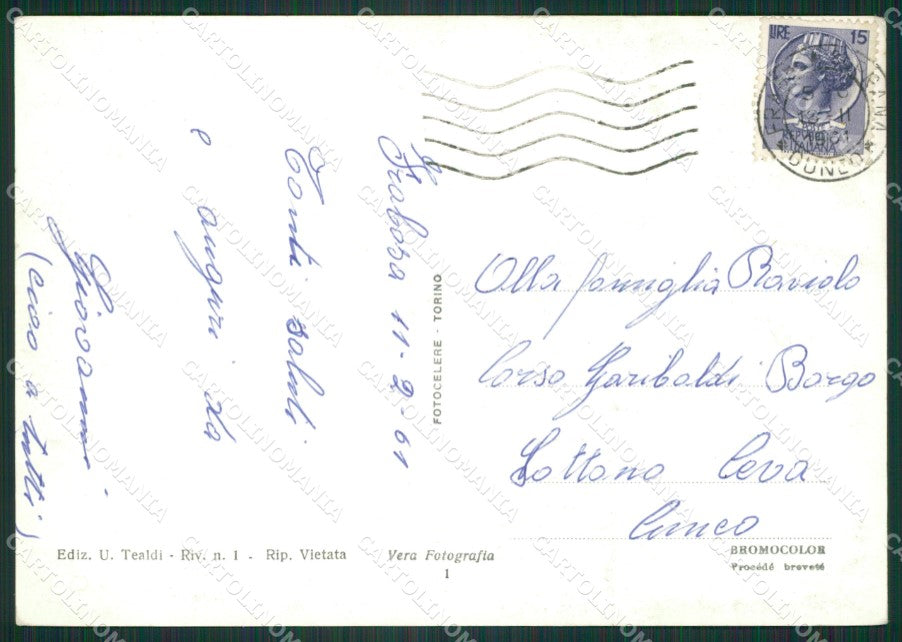 Frabosa 11-2-61
Tanti saluti
e auguri da
Giovanni
(ciao a tutti)
FOTOCELERE - TORINO
LIRE 15
REPUBBLICA
ITALIANA
CUNEO
Alla famiglia Raviolo
Corso Garibaldi Borgo
Ceva
Cuneo
Ediz. U. Tealdi - Riv. n. 1 - Rip. Vietata
Vera Fotografia
1
BROMOCOLOR
Procédé breveté
CARTOLINOMANIA